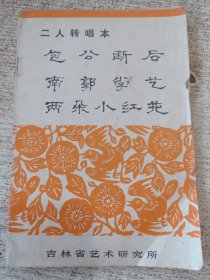 二人转唱本
包公断后
南郭学艺
两朵小红花
吉林省艺术研究所